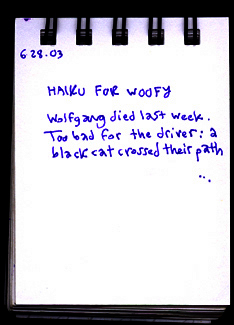 6 28.03
HAIKU FOR WOOFY
Wolfgang died last week.
Too bad for the driver: a
black cat crossed their path
...